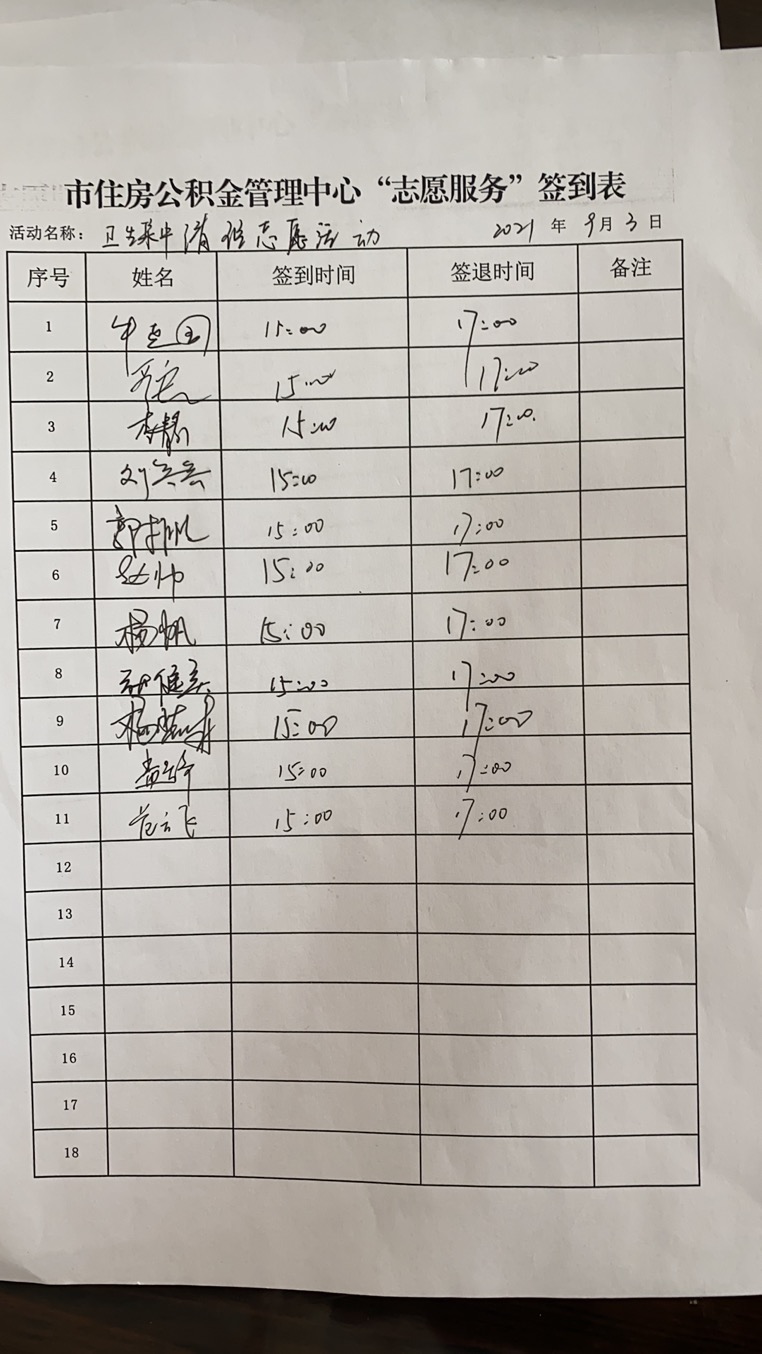 市住房公积金管理中心“志愿服务”签到表
活动名称： 卫生集中清理志愿活动 2021 年 9月 3 日
序号 姓名 签到时间 签退时间 备注
1 15:00 17:00
2 15:00 17:00
3 李静 15:00 17:00
4 15:00 17:00
5 15:00 17:00
6 15:00 17:00
7 杨帆 15:00 17:00
8 15:00 17:00
9 15:00 17:00
10 15:00 17:00
11 范云飞 15:00 17:00
12
13
14
15
16
17
18